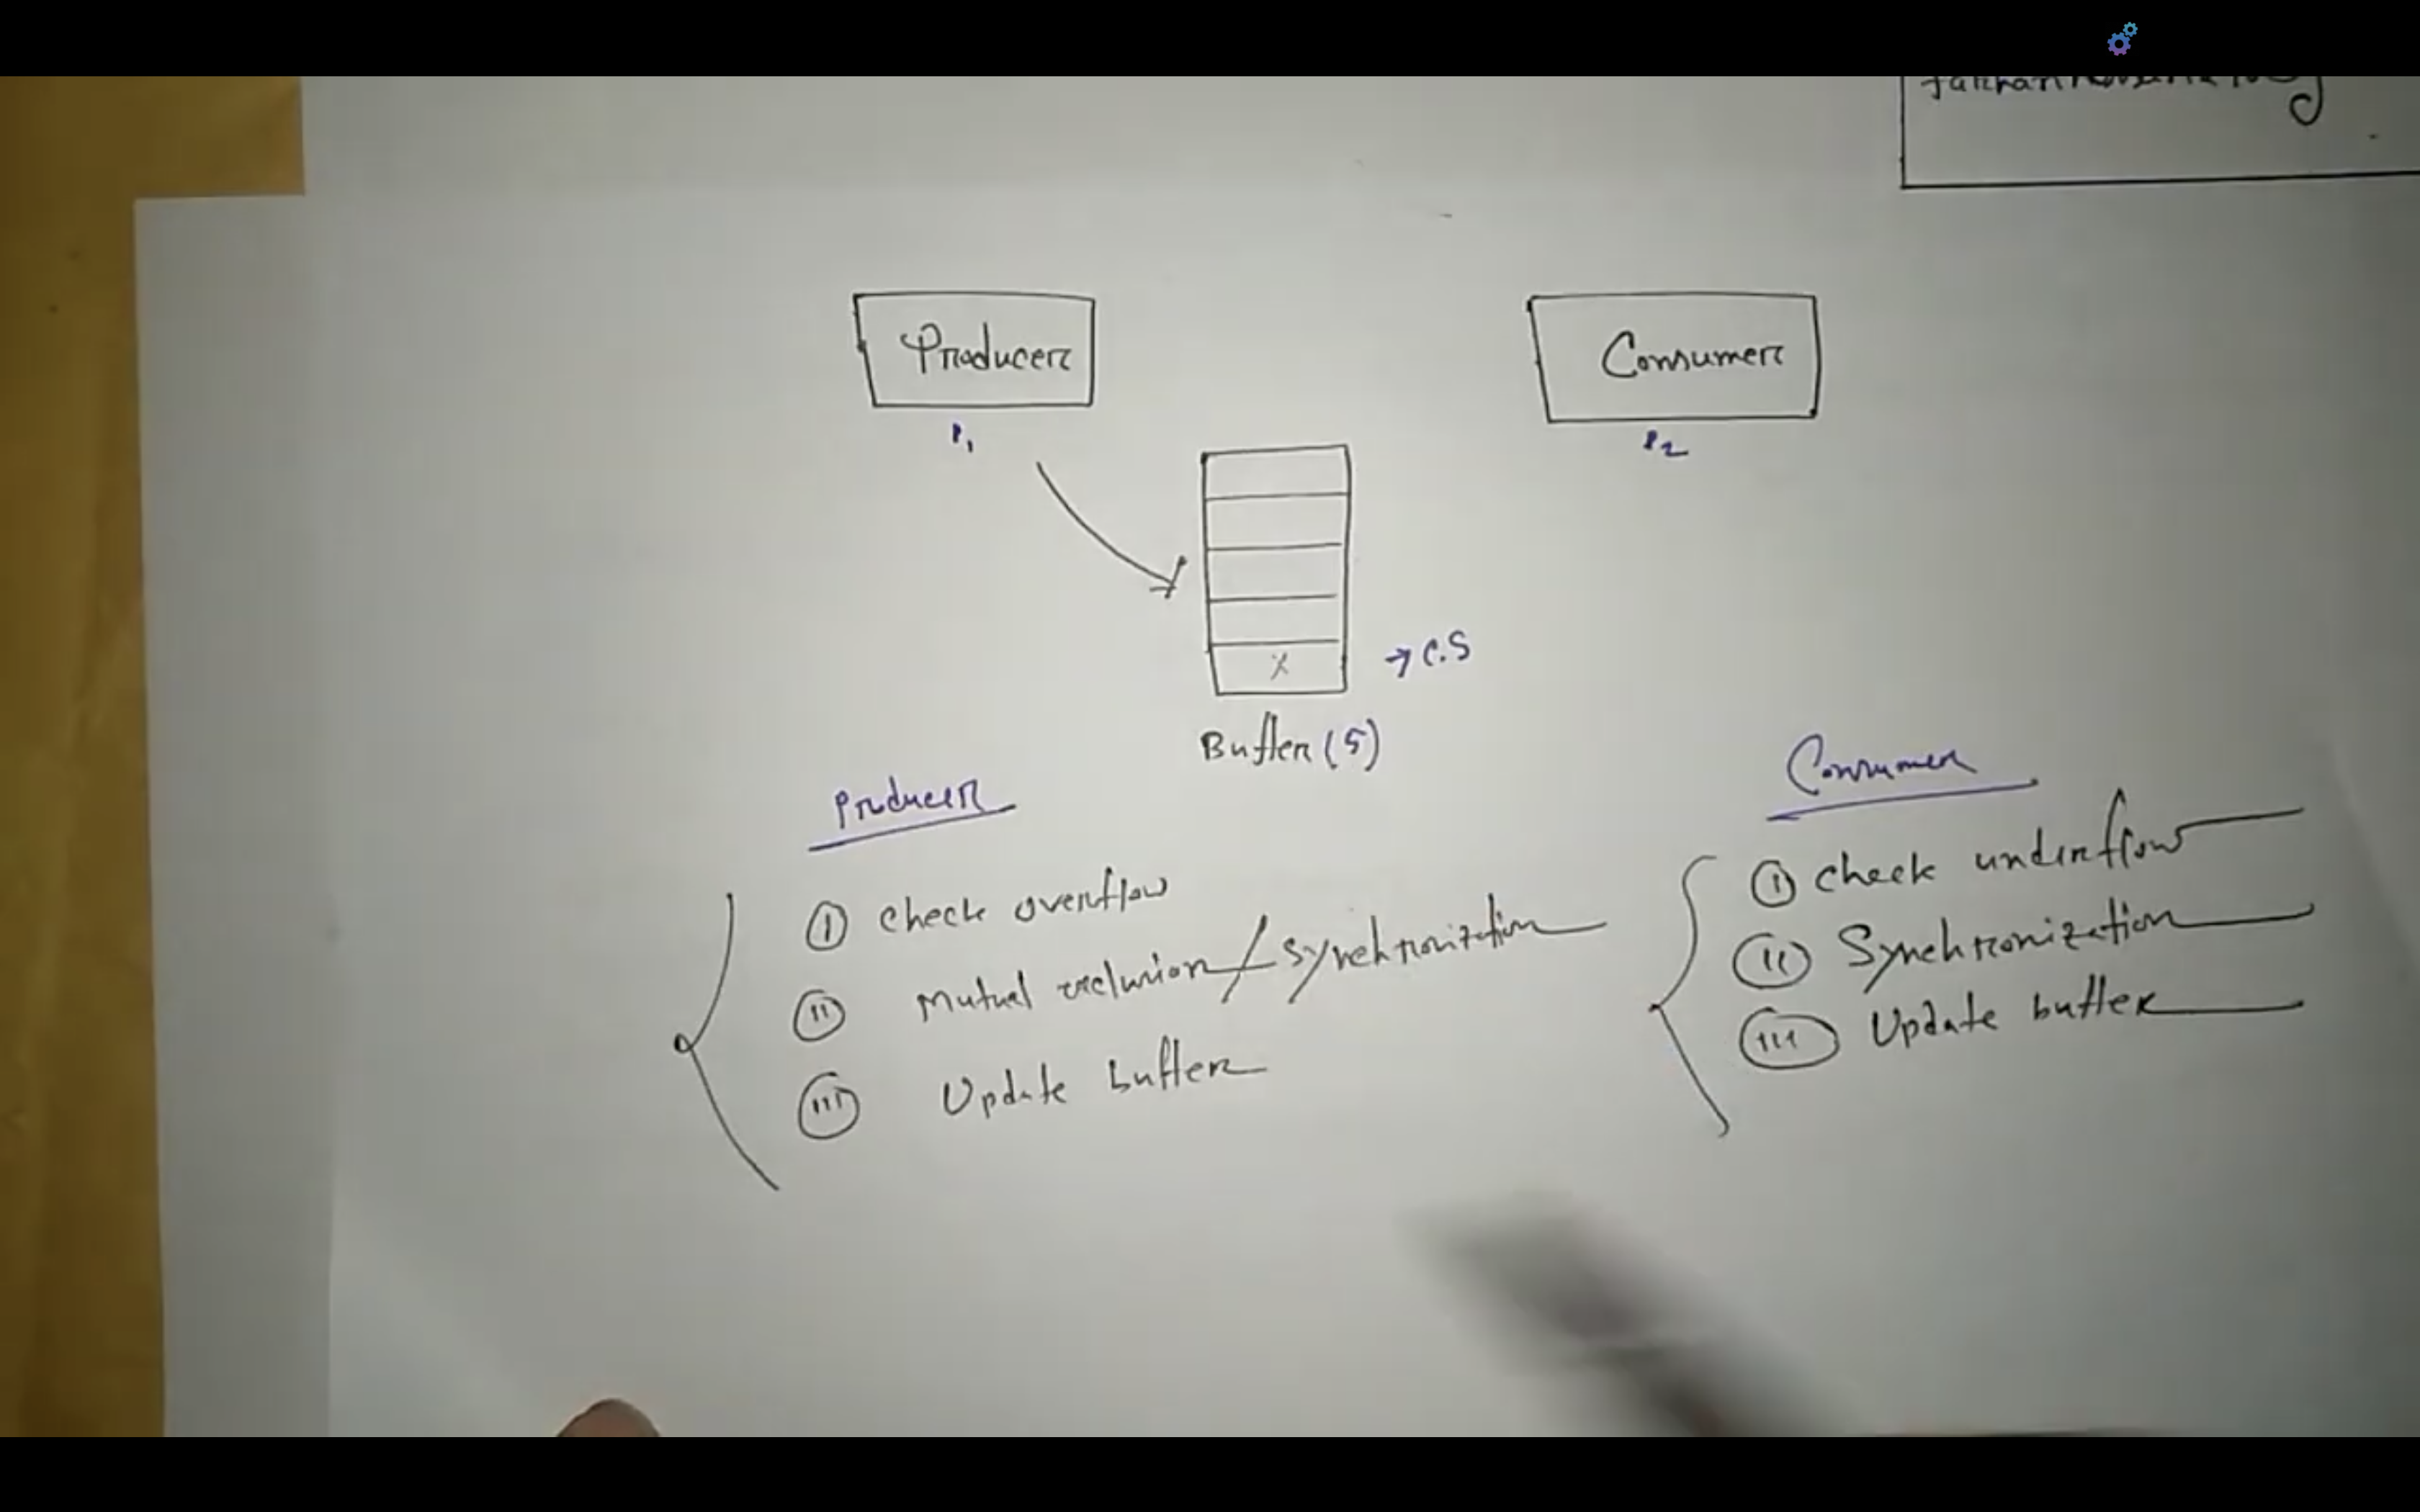 Producer
Consumer
P1
P2
X
→ C.S
Buffer (5)
Producer
Consumer
① check overflow
② Mutual exclusion / Synchronization
③ Update buffer
① check underflow
② Synchronization
③ Update buffer